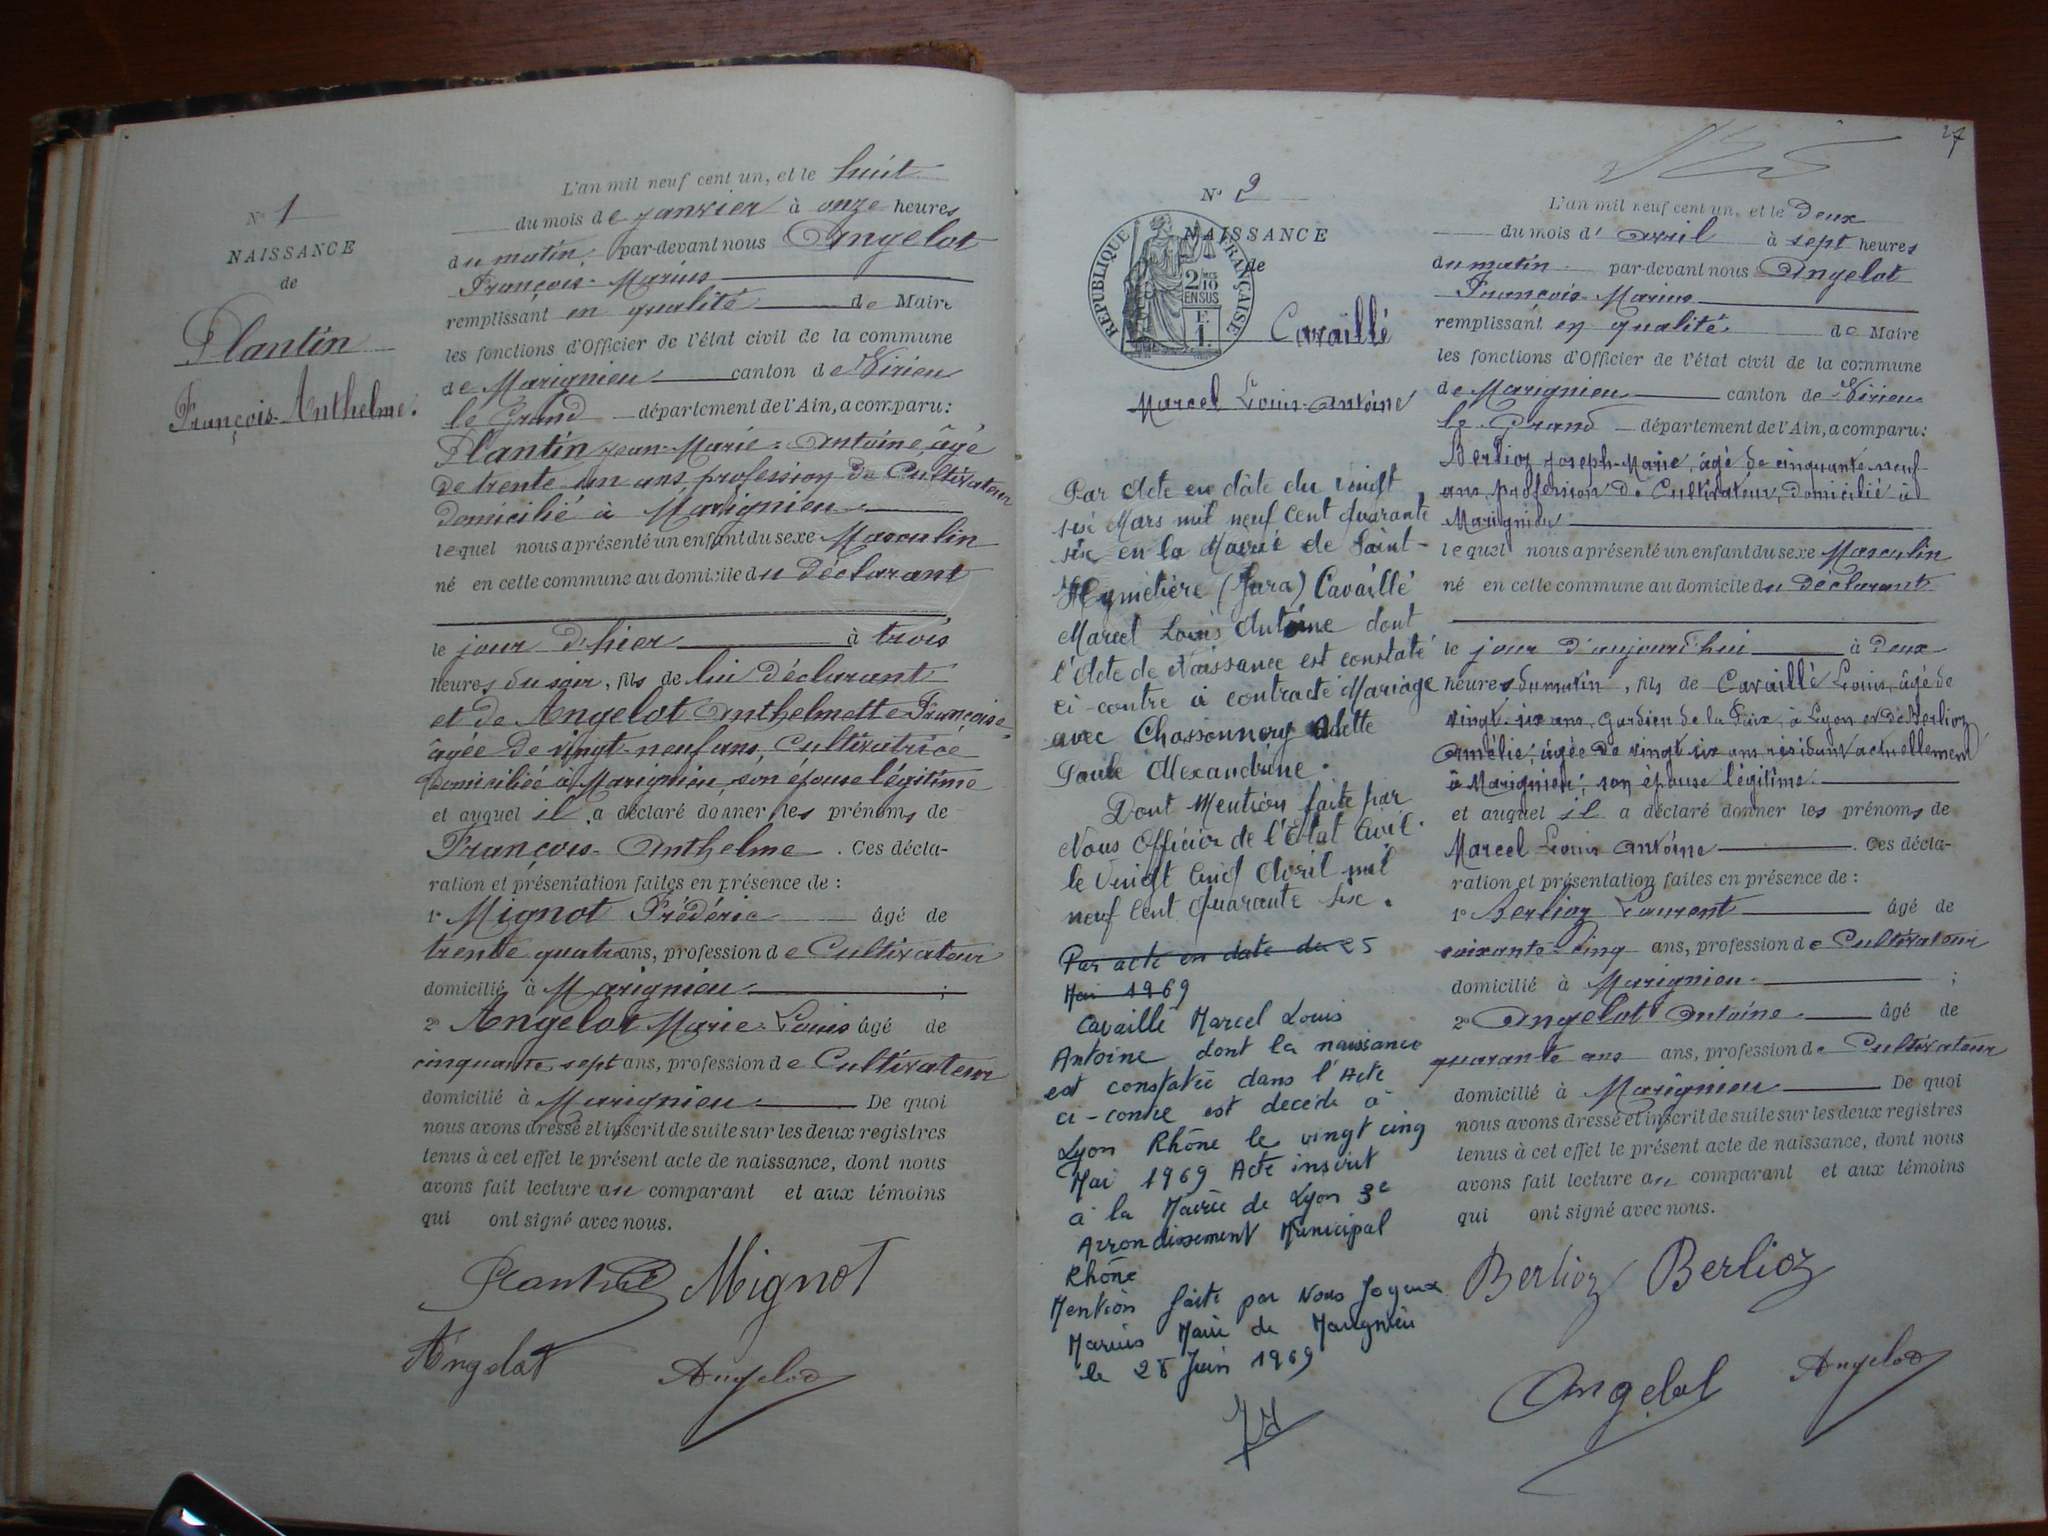 N° 1
NAISSANCE
de
Plantin
François-Anthelme.
L'an mil neuf cent un, et le huit
du mois de janvier à onze heures
du matin, par-devant nous Angelot
François-Marius
remplissant en qualité de Maire
les fonctions d'Officier de l'état civil de la commune
de Marignieu canton de Virieu
le Grand département de l'Ain, a comparu:
Plantin Jean-Marie-Antoine, âgé
de trente un ans profession de Cultivateur
domicilié à Marignieu
lequel nous a présenté un enfant du sexe Masculin
né en cette commune au domicile du déclarant
le jour d'hier à trois
heures du soir, fils de lui déclarant
et de Angelot Anthelmette Françoise
âgée de vingt-neuf ans, Cultivatrice
domiciliée à Marignieu, son épouse légitime
et auquel il a déclaré donner les prénoms de
François-Anthelme. Ces décla-
ration et présentation faites en présence de :
1° Mignot Frédéric âgé de
trente quatre ans, profession de Cultivateur
domicilié à Marignieu ;
2° Angelot Marie-Louis âgé de
cinquante sept ans, profession de Cultivateur
domicilié à Marignieu De quoi
nous avons dressé et inscrit de suite sur les deux registres
tenus à cet effet le présent acte de naissance, dont nous
avons fait lecture au comparant et aux témoins
qui ont signé avec nous.
Plantin Mignot
Angelot Angelot
27
N° 2
NAISSANCE
de
RÉPUBLIQUE FRANÇAISE
2/10
EN SUS
F.
1.
Cavaillé
Marcel Louis-Antoine
Par Acte en date du vingt
six Mars mil neuf cent quarante
six en la Mairie de Saint-
Hymetière (Jura) Cavaillé
Marcel Louis Antoine dont
l'Acte de Naissance est constaté
ci-contre à contracté Mariage
avec Chassonnery Odette
Paule Alexandrine.
Dont Mention faite par
Nous Officier de l'Etat Civil.
le Vingt Cinq Avril mil
neuf Cent Quarante Six.
Par acte en date du 25
Mai 1969
Cavaillé Marcel Louis
Antoine dont la naissance
est constatée dans l'Acte
ci-contre est décédé à
Lyon Rhône le vingt cinq
Mai 1969 Acte inscrit
à la Mairie de Lyon 3e
Arrondissement Municipal
Rhône
Mention faite par Nous Joyeux
Marius Maire de Marignieu
le 28 Juin 1969
L'an mil neuf cent un, et le Deux
du mois d'avril à sept heures
du matin par-devant nous Angelot
François-Marius
remplissant en qualité de Maire
les fonctions d'Officier de l'état civil de la commune
de Marignieu canton de Virieu
le Grand département de l'Ain, a comparu:
Berlioz Joseph-Marie, âgé de cinquante neuf
ans, profession de Cultivateur, domicilié à
Marignieu
lequel nous a présenté un enfant du sexe Masculin
né en cette commune au domicile du déclarant
le jour d'aujourd'hui à deux
heures du matin, fils de Cavaillé Louis, âgé de
vingt-six ans, gardien de la Paix, à Lyon et de Berlioz
Amélie, âgée de vingt six ans résidant actuellement
à Marignieu; son épouse légitime
et auquel il a déclaré donner les prénoms de
Marcel Louis Antoine. Ces décla-
ration et présentation faites en présence de :
1° Berlioz Laurent âgé de
soixante-cinq ans, profession de Cultivateur
domicilié à Marignieu ;
2° Angelot Antoine âgé de
quarante ans ans, profession de Cultivateur
domicilié à Marignieu De quoi
nous avons dressé et inscrit de suite sur les deux registres
tenus à cet effet le présent acte de naissance, dont nous
avons fait lecture au comparant et aux témoins
qui ont signé avec nous.
Berlioz Berlioz
Angelot Angelot